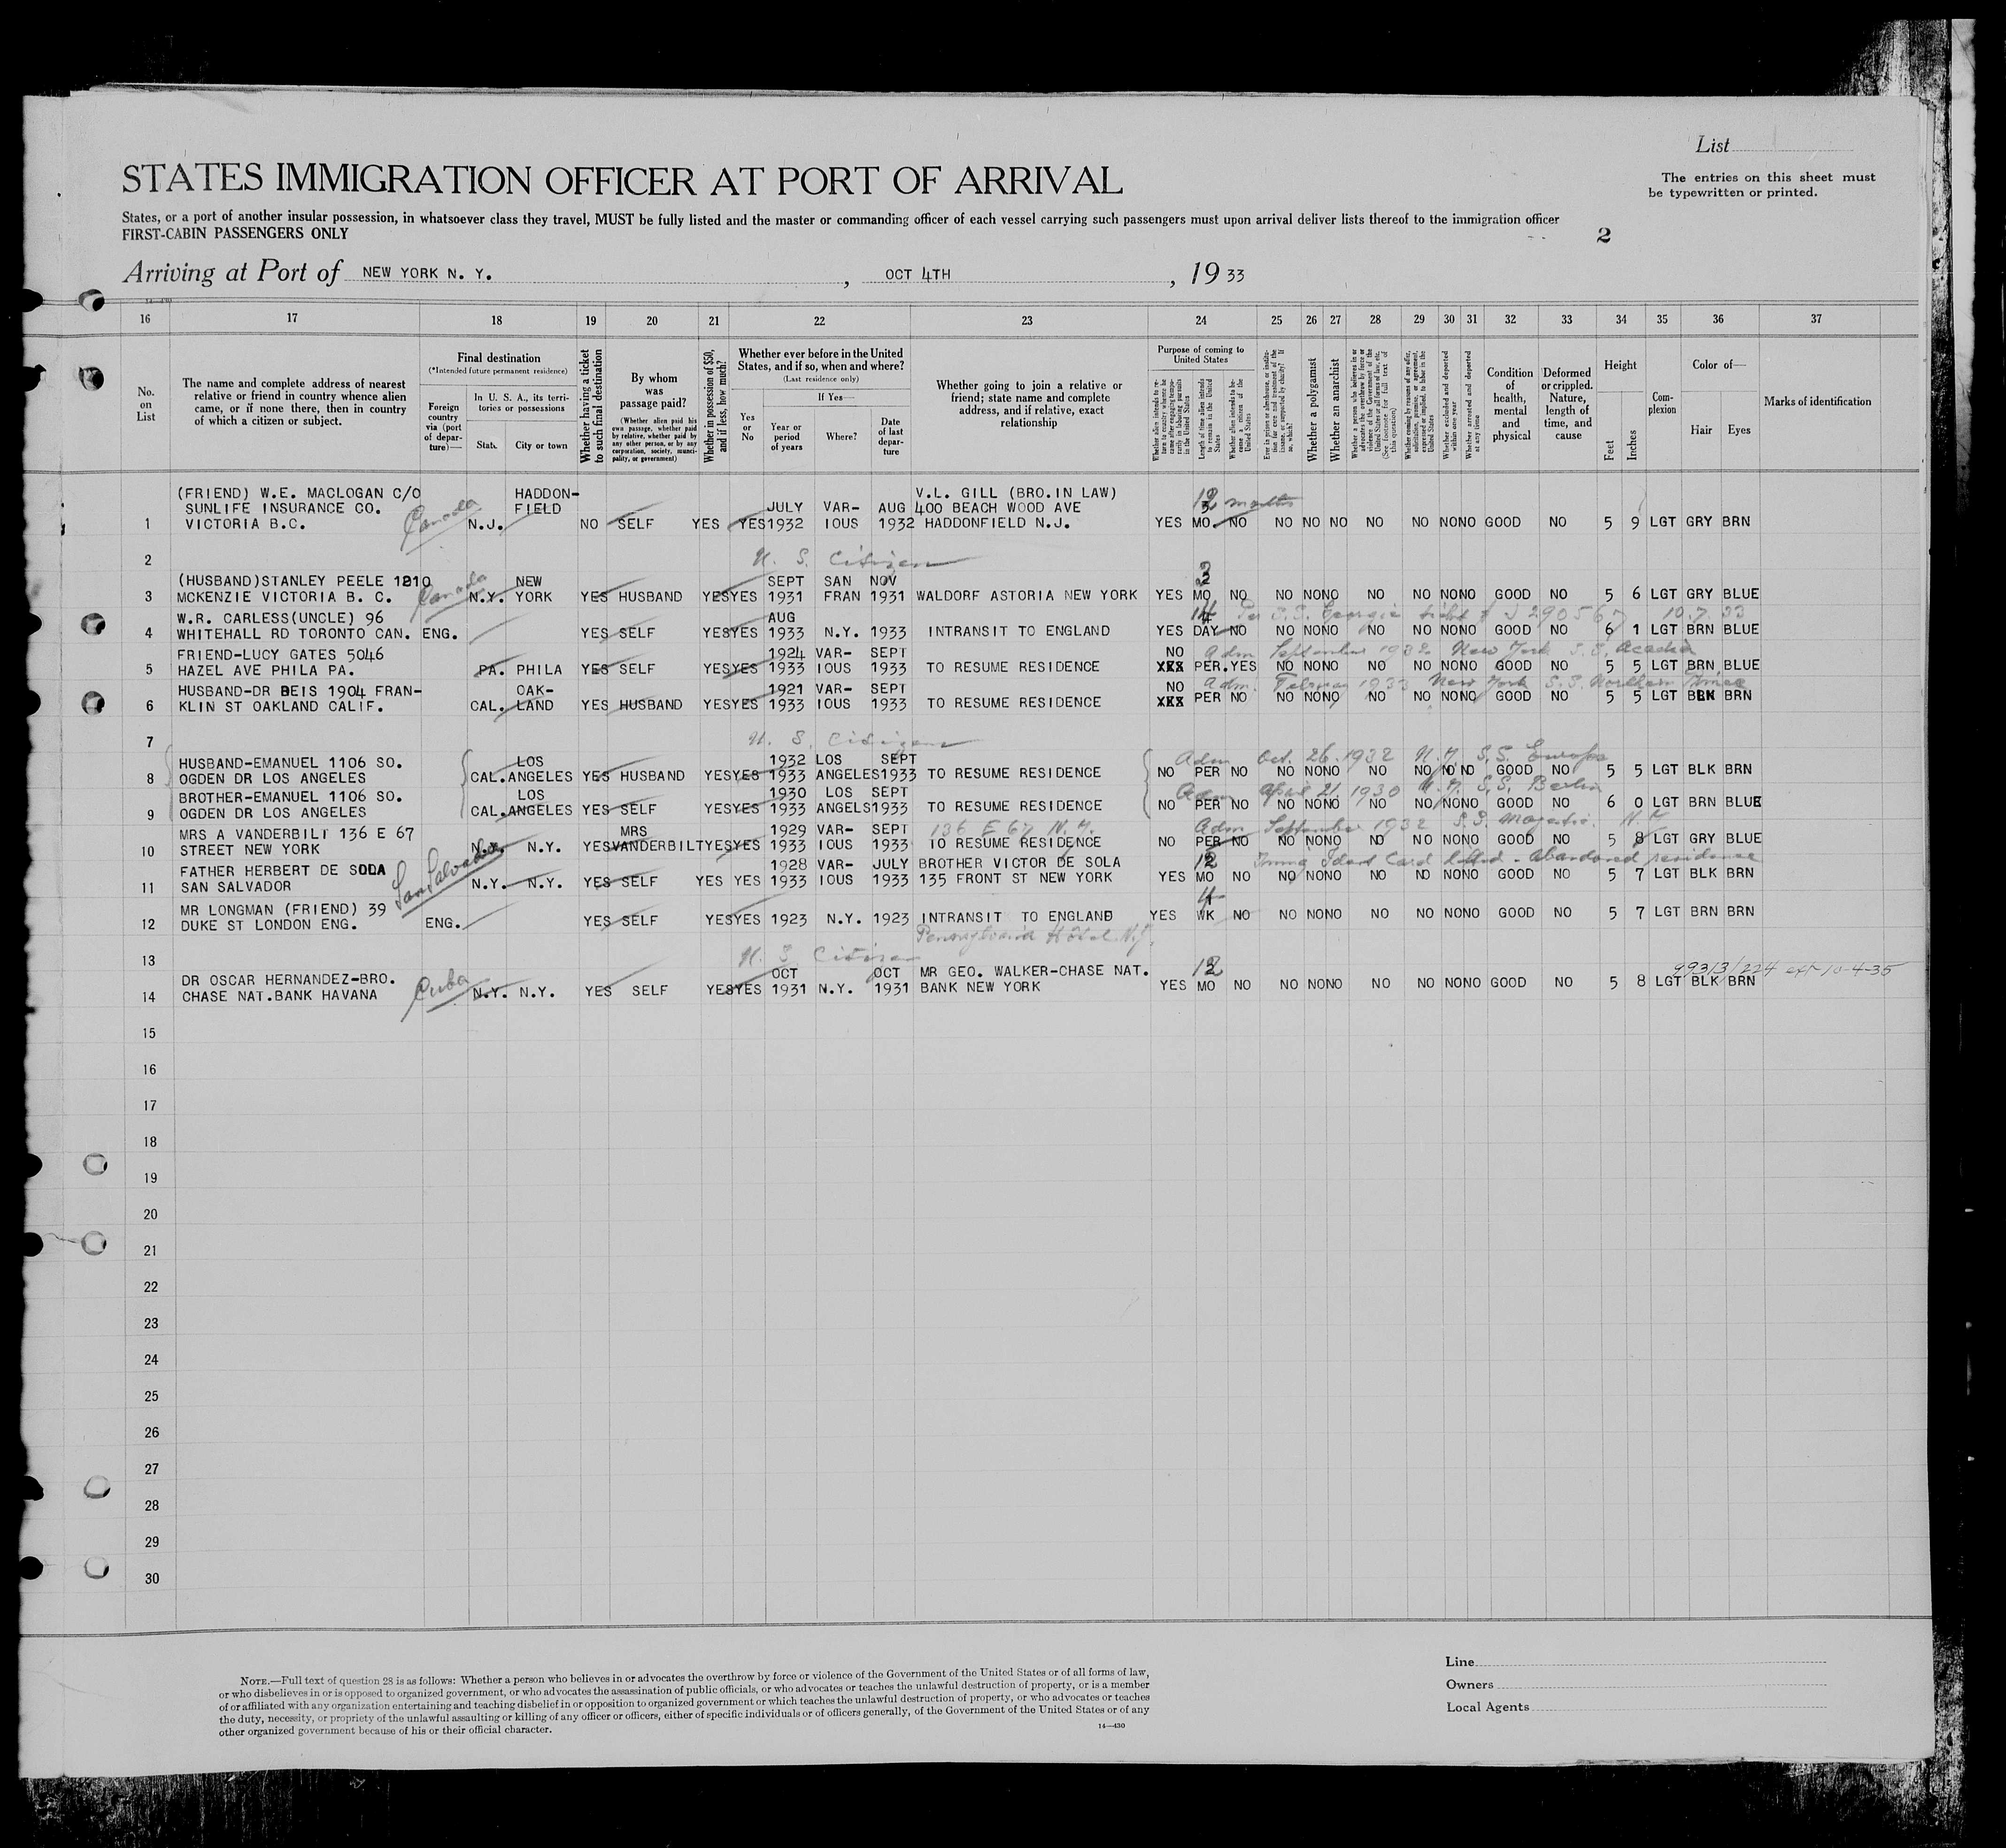 List
STATES IMMIGRATION OFFICER AT PORT OF ARRIVAL
The entries on this sheet must
be typewritten or printed.
States, or a port of another insular possession, in whatsoever class they travel, MUST be fully listed and the master or commanding officer of each vessel carrying such passengers must upon arrival deliver lists thereof to the immigration officer
FIRST-CABIN PASSENGERS ONLY
2
Arriving at Port of NEW YORK N. Y., OCT 4TH, 19 33
16 17 18 19 20 21 22 23 24 25 26 27 28 29 30 31 32 33 34 35 36 37
No. on List
The name and complete address of nearest relative or friend in country whence alien came, or if none there, then in country of which a citizen or subject.
Final destination
(*Intended future permanent residence)
Foreign country via (port of departure)—
In U. S. A., its territories or possessions
State
City or town
Whether having a ticket to such final destination
By whom was passage paid?
(Whether alien paid his own passage, whether paid by relative, whether paid by any other person, or by any corporation, society, municipality, or government)
Whether in possession of $50, and if less, how much?
Whether ever before in the United States, and if so, when and where?
(Last residence only)
Yes or No
If Yes—
Year or period of years
Where?
Date of last departure
Whether going to join a relative or friend; state name and complete address, and if relative, exact relationship
Purpose of coming to United States
Length of time alien intends to remain in the United States
Whether alien intends to become a citizen of the United States
Whether a polygamist
Whether an anarchist
Whether arrested and deported at any time
Condition of health, mental and physical
Deformed or crippled. Nature, length of time, and cause
Height
Feet
Inches
Complexion
Color of—
Hair
Eyes
Marks of identification
(FRIEND) W.E. MACLOGAN C/O HADDON- V.L. GILL (BRO.IN LAW) 12 months
SUNLIFE INSURANCE CO. FIELD JULY VAR- AUG 400 BEACH WOOD AVE
1 VICTORIA B.C. Canada N.J. NO SELF YES YES 1932 IOUS 1932 HADDONFIELD N.J. YES MO. NO NO NO NO NO NO NO NO GOOD NO 5 9 LGT GRY BRN
2 U. S. Citizen
(HUSBAND)STANLEY PEELE 1210 NEW SEPT SAN NOV
3 MCKENZIE VICTORIA B. C. Canada N.Y. YORK YES HUSBAND YES YES 1931 FRAN 1931 WALDORF ASTORIA NEW YORK YES MO NO NO NO NO NO NO NO NO GOOD NO 5 6 LGT GRY BLUE
W.R. CARLESS(UNCLE) 96 AUG 14 Per S.S. Georgic ticket # J 290567 10.7.33
4 WHITEHALL RD TORONTO CAN. ENG. YES SELF YES YES 1933 N.Y. 1933 INTRANSIT TO ENGLAND YES DAY NO NO NO NO NO NO NO NO GOOD NO 6 1 LGT BRN BLUE
FRIEND-LUCY GATES 5046 1924 VAR- SEPT NO Adm September 1932 New York S.S. Acadia
5 HAZEL AVE PHILA PA. PA. PHILA YES SELF YES YES 1933 IOUS 1933 TO RESUME RESIDENCE XXX PER. YES NO NO NO NO NO NO NO GOOD NO 5 5 LGT BRN BLUE
HUSBAND-DR BEIS 1904 FRAN- OAK- 1921 VAR- SEPT NO Adm. February 1933 New York S.S. Northern Prince
6 KLIN ST OAKLAND CALIF. CAL. LAND YES HUSBAND YES YES 1933 IOUS 1933 TO RESUME RESIDENCE XXX PER NO NO NO NO NO NO NO NO GOOD NO 5 5 LGT BLK BRN
7 U. S. Citizen
HUSBAND-EMANUEL 1106 SO. LOS 1932 LOS SEPT Adm Oct. 26. 1932 N.Y. S.S. Europa
8 OGDEN DR LOS ANGELES CAL. ANGELES YES HUSBAND YES YES 1933 ANGELES 1933 TO RESUME RESIDENCE NO PER NO NO NO NO NO NO NO NO GOOD NO 5 5 LGT BLK BRN
BROTHER-EMANUEL 1106 SO. LOS 1930 LOS SEPT Adm April 21. 1930 N.Y. S.S. Berlin
9 OGDEN DR LOS ANGELES CAL. ANGELES YES SELF YES YES 1933 ANGELS 1933 TO RESUME RESIDENCE NO PER NO NO NO NO NO NO NO NO GOOD NO 6 0 LGT BRN BLUE
MRS A VANDERBILT 136 E 67 MRS 1929 VAR- SEPT 136 E 67 N.Y. Adm September 1932 S.S. Majestic. N.Y
10 STREET NEW YORK N.Y. N.Y. YES VANDERBILT YES YES 1933 IOUS 1933 TO RESUME RESIDENCE NO PER NO NO NO NO NO NO NO NO GOOD NO 5 8 LGT GRY BLUE
FATHER HERBERT DE SOLA 1928 VAR- JULY BROTHER VICTOR DE SOLA 12 Immig Ident Card lifted - abandoned residence
11 SAN SALVADOR San Salvador N.Y. N.Y. YES SELF YES YES 1933 IOUS 1933 135 FRONT ST NEW YORK YES MO NO NO NO NO NO NO NO NO GOOD NO 5 7 LGT BLK BRN
MR LONGMAN (FRIEND) 39 4
12 DUKE ST LONDON ENG. ENG. YES SELF YES YES 1923 N.Y. 1923 INTRANSIT TO ENGLAND YES WK NO NO NO NO NO NO NO NO GOOD NO 5 7 LGT BRN BRN
Pennsylvania Hotel N.Y.
13 U. S. Citizen
DR OSCAR HERNANDEZ-BRO. OCT OCT MR GEO. WALKER-CHASE NAT. 12 99313/224 ext 10-4-35
14 CHASE NAT.BANK HAVANA Cuba N.Y. N.Y. YES SELF YES YES 1931 N.Y. 1931 BANK NEW YORK YES MO NO NO NO NO NO NO NO NO GOOD NO 5 8 LGT BLK BRN
15
16
17
18
19
20
21
22
23
24
25
26
27
28
29
30
NOTE.—Full text of question 28 is as follows: Whether a person who believes in or advocates the overthrow by force or violence of the Government of the United States or of all forms of law,
or who disbelieves in or is opposed to organized government, or who advocates the assassination of public officials, or who advocates or teaches the unlawful destruction of property, or is a member
of or affiliated with any organization entertaining and teaching disbelief in or opposition to organized government or which teaches the unlawful destruction of property, or who advocates or teaches
the duty, necessity, or propriety of the unlawful assaulting or killing of any officer or officers, either of specific individuals or of officers generally, of the Government of the United States or of any
other organized government because of his or their official character.
14—430
Line
Owners
Local Agents